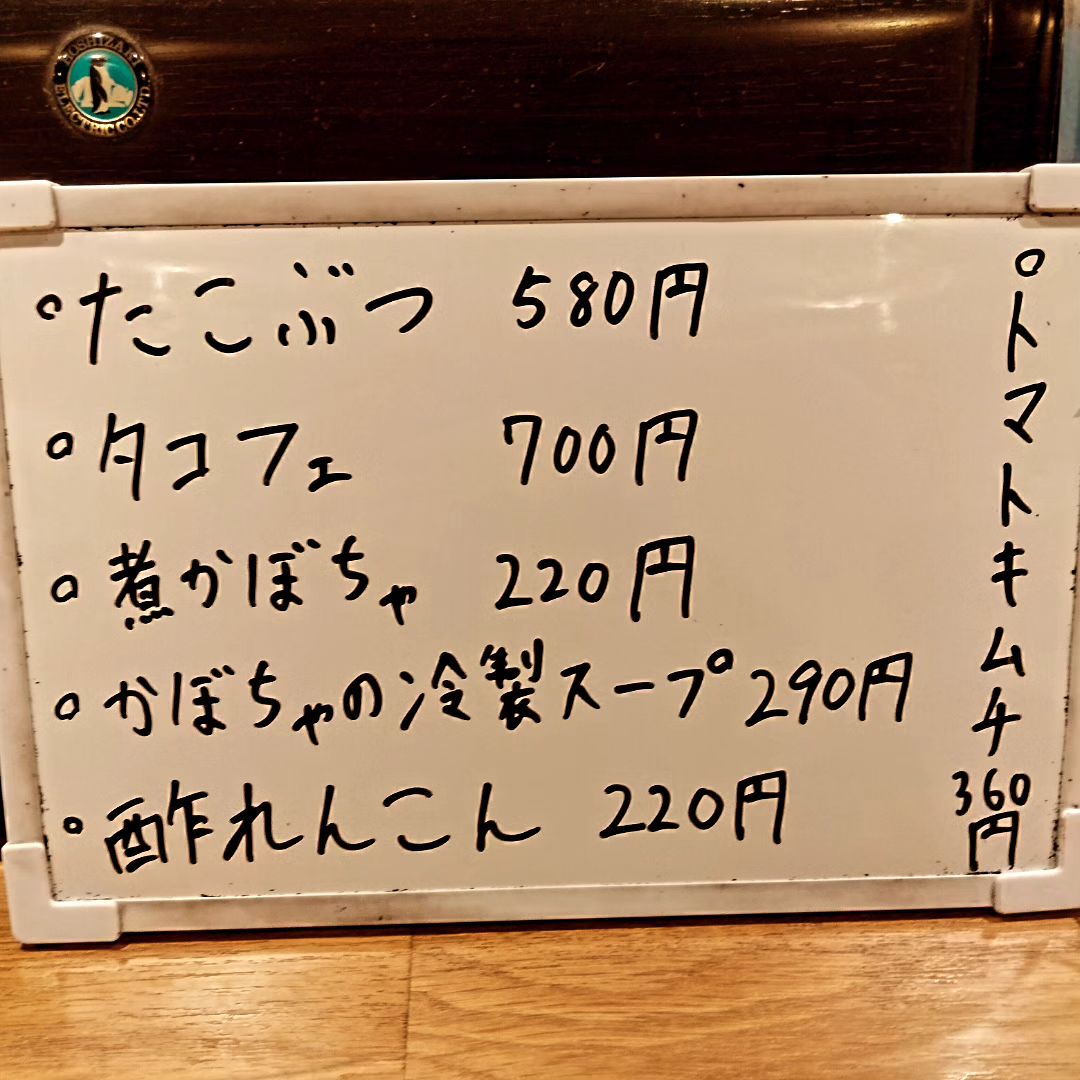 HOSHIZAKI ELECTRIC CO.,LTD.
°たこぶつ 580円
°タコフェ 700円
°煮かぼちゃ 220円
°かぼちゃの冷製スープ 290円
°酢れんこん 220円
°トマトキムチ 360円